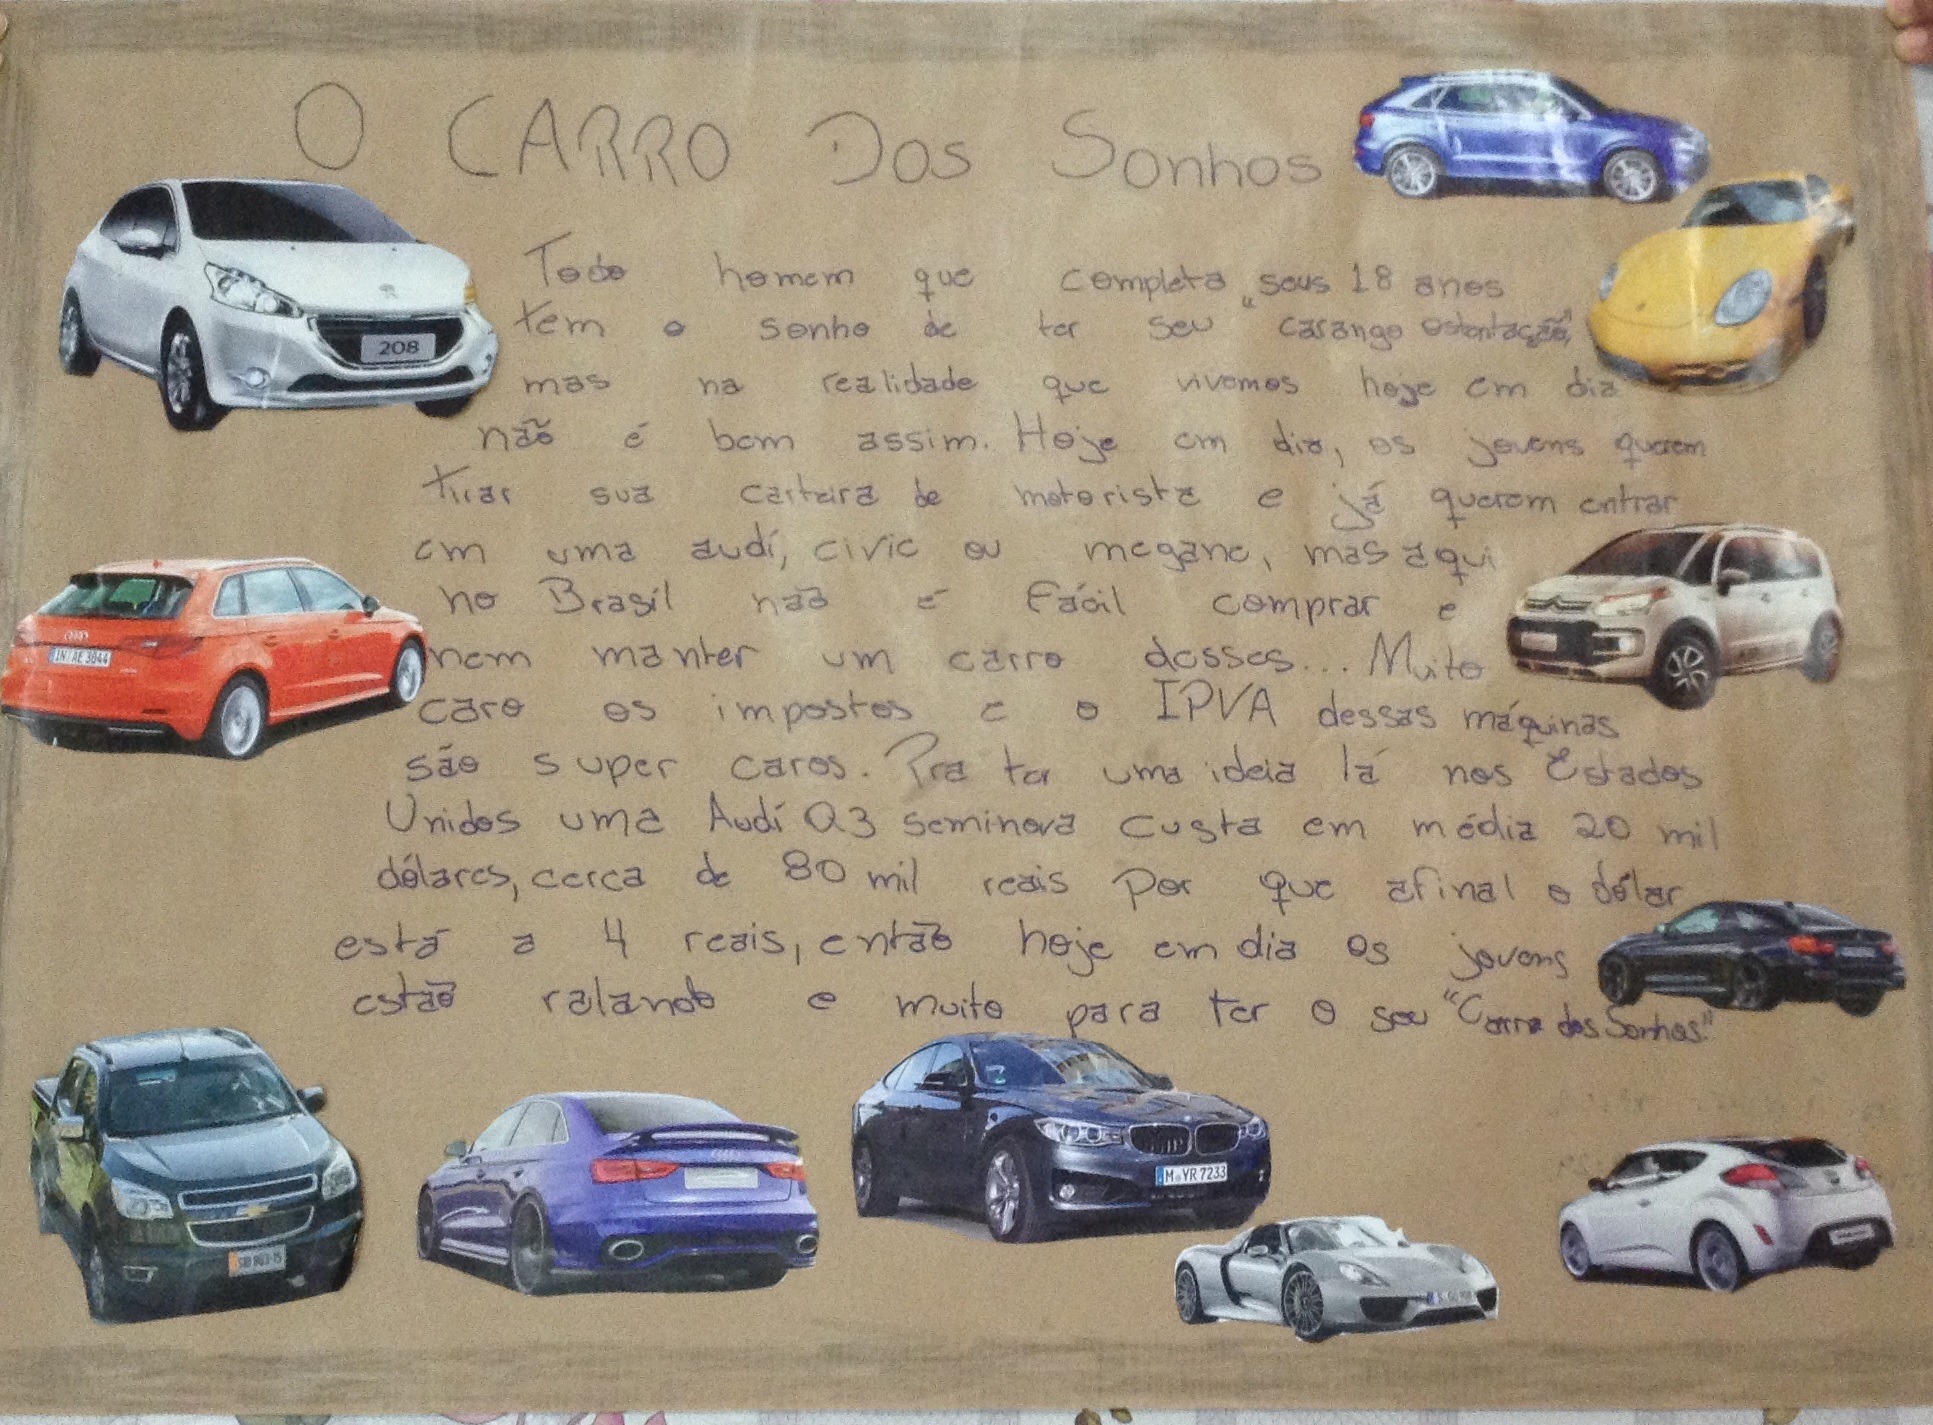 O CARRO Dos Sonhos
Todo homem que completa seus 18 anos
tem o sonho de ter seu "carango ostentação",
mas na realidade que vivemos hoje em dia
não é bem assim. Hoje em dia, os jovens querem
tirar sua carteira de motorista e já querem entrar
em uma audí, civic ou megane, mas aqui
no Brasil não é fácil comprar e
nem manter um carro desses... Muito
caro os impostos e o IPVA dessas máquinas
são super caros. Pra ter uma ideia lá nos Estados
Unidos uma Audí Q3 seminova custa em média 20 mil
dólares, cerca de 80 mil reais por que afinal o dólar
está a 4 reais, então hoje em dia os jovens
estão ralando e muito para ter o seu "Carro dos Sonhos"
208
IN AE 3044
M YR 7233